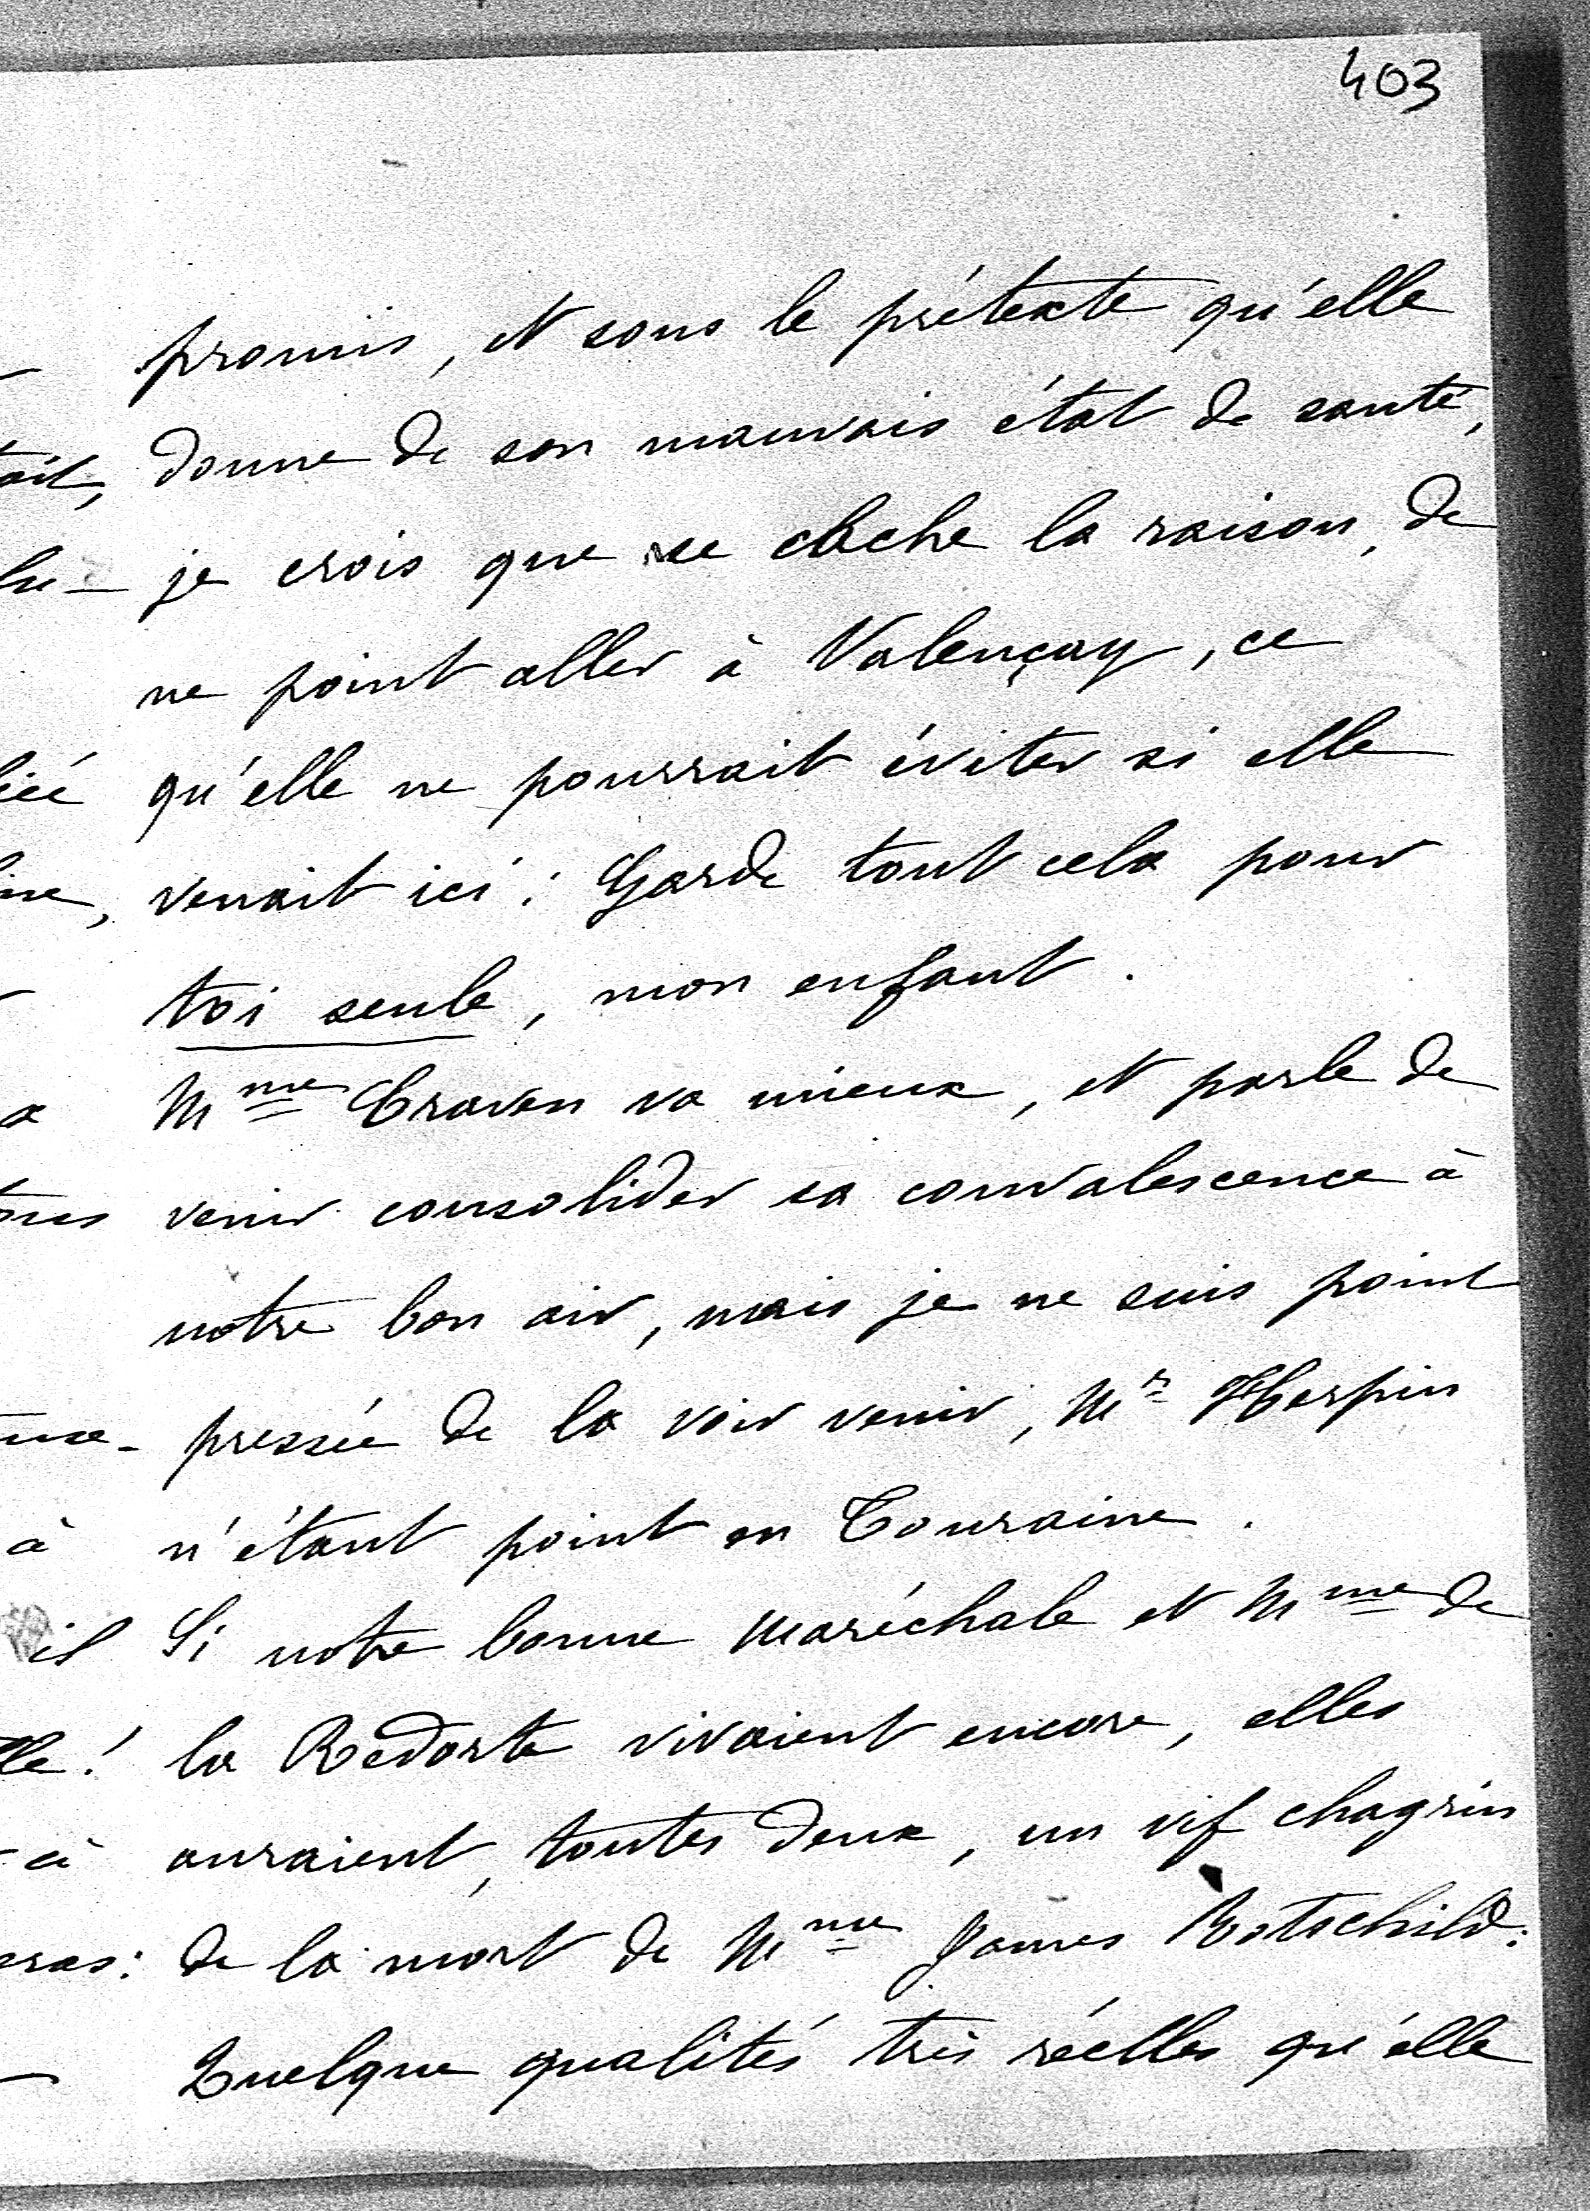 403
promis, et sous le prétexte qu'elle
donne de son mauvais état de santé,
je crois que se cache la raison, de
ne point aller à Valençay, ce
qu'elle ne pourrait éviter si elle
venait ici : Garde tout cela pour
toi seule, mon enfant.
Mme Craven va mieux, et parle de
venir consolider sa convalescence à
notre bon air, mais je ne suis point
pressée de la voir venir, Mr Herpin
n'étant point en Touraine.
Si notre bonne Maréchale et Mme de
la Redorte vivaient encore, elles
auraient, toutes deux, un vif chagrin
de la mort de Mme James Rotschild :
Quelque qualités très réelles qu'elle